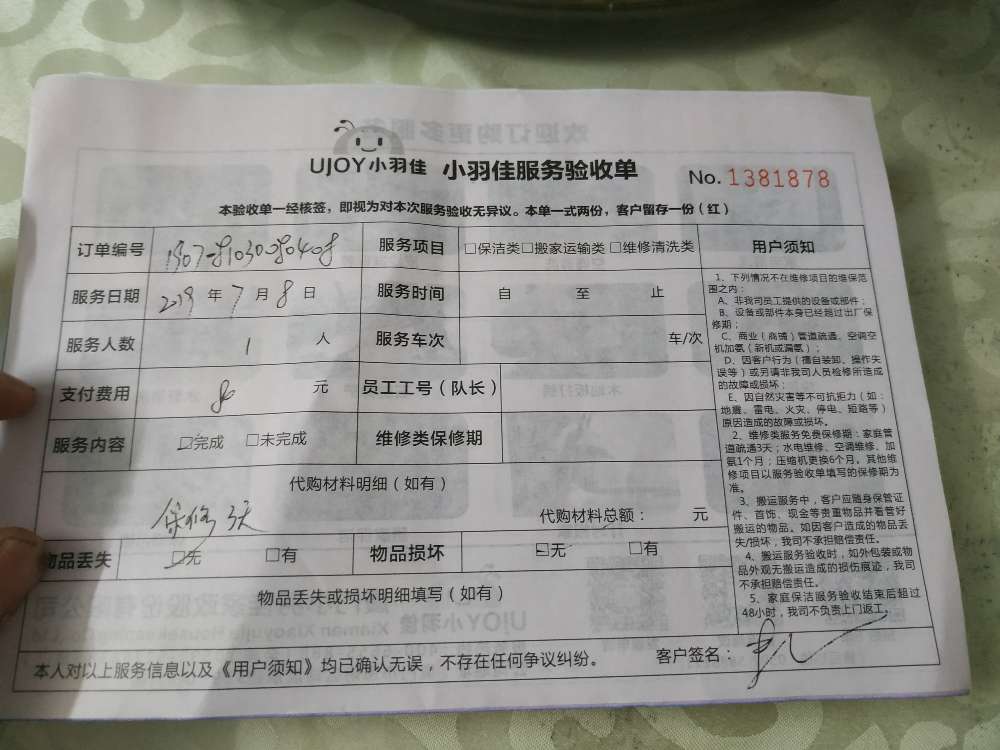 UJOY小羽佳 小羽佳服务验收单 No. 1381878
本验收单一经核签，即视为对本次服务验收无异议。本单一式两份，客户留存一份（红）
订单编号 服务项目 □保洁类□搬家运输类□维修清洗类 用户须知
服务日期 2019 年 7 月 8 日 服务时间 自 至 止
服务人数 1 人 服务车次 车/次
支付费用 80 元 员工工号（队长）
服务内容 □完成 □未完成 维修类保修期
代购材料明细（如有）
保修 3天
代购材料总额： 元
物品丢失 □无 □有 物品损坏 □无 □有
物品丢失或损坏明细填写（如有）
1、下列情况不在维修项目的维保范
围之内：
A、非我司员工提供的设备或部件；
B、设备或部件本身已经超过出厂保
修期；
C、商业（商铺）管道疏通、空调空
机加氨（新机或漏氨）；
D、因客户行为（擅自装卸、操作失
误等）或另请非我司人员检修所造成
的故障或损坏；
E、因自然灾害等不可抗拒力（如：
地震、雷电、火灾、停电、短路等）
原因造成的故障或损坏。
2、维修类服务免费保修期：家庭管
道疏通3天；水电维修、空调维修、加
氨1个月；压缩机更换6个月。其他维
修项目以服务验收单填写的保修期为
准。
3、搬运服务中，客户应随身保管证
件、首饰、现金等贵重物品并看管好
搬运的物品。如因客户造成的物品丢
失/损坏，我司不承担赔偿责任。
4、搬运服务验收时，如外包装或物
品外观无搬运造成的损伤痕迹，我司
不承担赔偿责任。
5、家庭保洁服务验收结束后超过
48小时，我司不负责上门返工。
本人对以上服务信息以及《用户须知》均已确认无误，不存在任何争议纠纷。 客户签名：